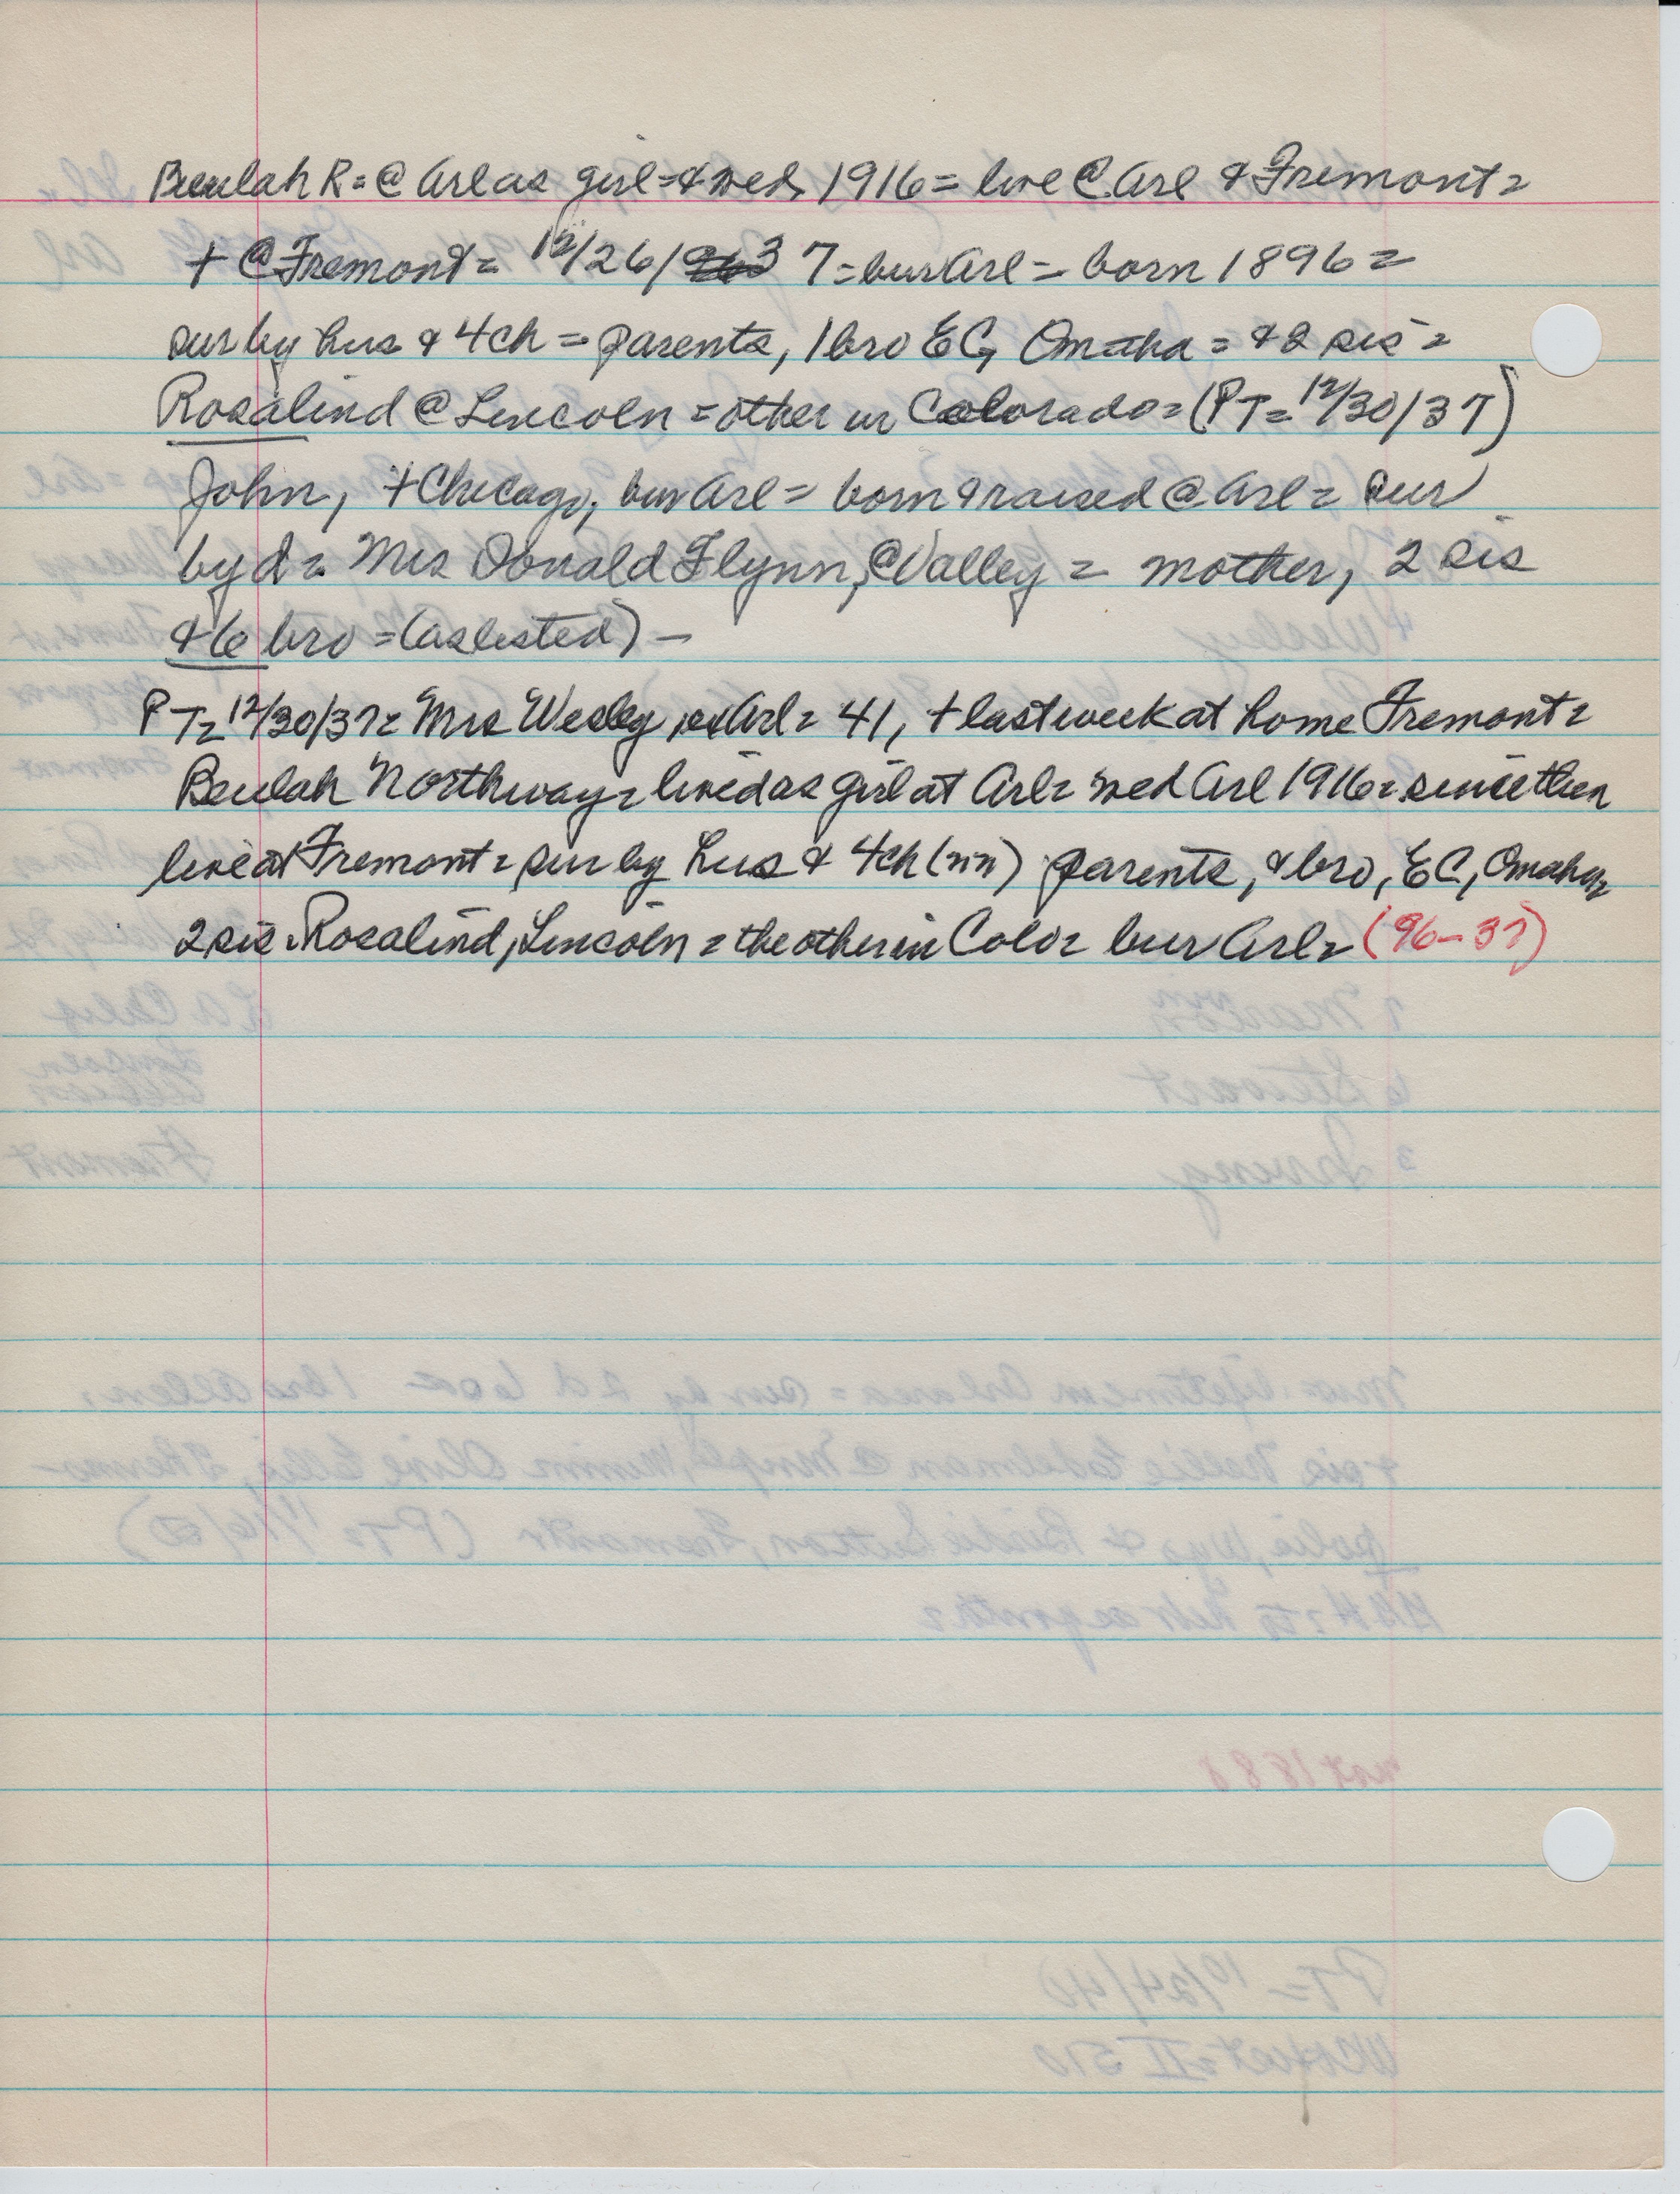 Beulah R = @ Arl as girl = & wed, 1916 = live @ Arl & Fremont =
+ @ Fremont = 12/26/37 = bur Arl = born 1896 =
sur by hus & 4 ch = parents, 1 bro EC, Omaha = & 2 sis =
Rosalind @ Lincoln = other in Colorado = (PT = 12/30/37)
John, + Chicago, bur Arl = born & raised @ Arl = sur
by d = Mrs Donald Flynn, @ Valley = mother, 2 sis
& 6 bro = (as listed) —
PT = 12/30/37 = Mrs Wesley, ex Arl = 41, + last week at home Fremont =
Beulah Northway = lived as girl at Arl = wed Arl 1916 = since then
live at Fremont = sur by hus & 4 ch (nn) parents, & bro, EC, Omaha =
2 sis = Rosalind, Lincoln = the other in Colo = bur Arl = (96-37)